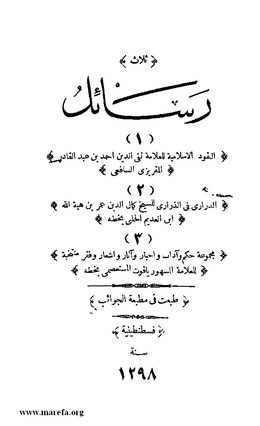 ﴿ ثلاث ﴾
رسائل
( ١ )
﴿ النقود الاسلامية للعلامة تقى الدين احمد بن عبد القادر ﴾
﴿ المقريزى الشافعى ﴾
( ٢ )
﴿ الدرارى فى الذرارى للشيخ كمال الدين عمر بن هبة الله ﴾
﴿ ابن العديم الحلبى بخطه ﴾
( ٣ )
﴿ مجموعة حكم وآداب واخبار وآثار واشعار وفقر منتخبة ﴾
﴿ للعلامة المشهور ياقوت المستعصمى بخطه ﴾
﴿ طبعت فى مطبعة الجوائب ﴾
﴿ قسطنطينية ﴾
سنة
١٢٩٨
www.marefa.org